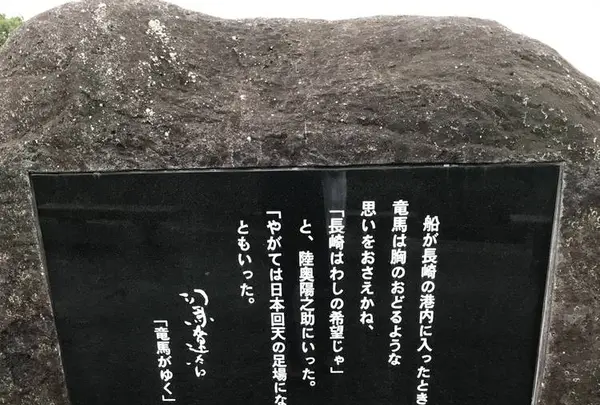 船が長崎の港内に入ったとき
竜馬は胸のおどるような
思いをおさえかね、
「長崎はわしの希望じゃ」
と、陸奥陽之助にいった。
「やがては日本回天の足場にな
ともいった。
司馬遼太郎
「竜馬がゆく」